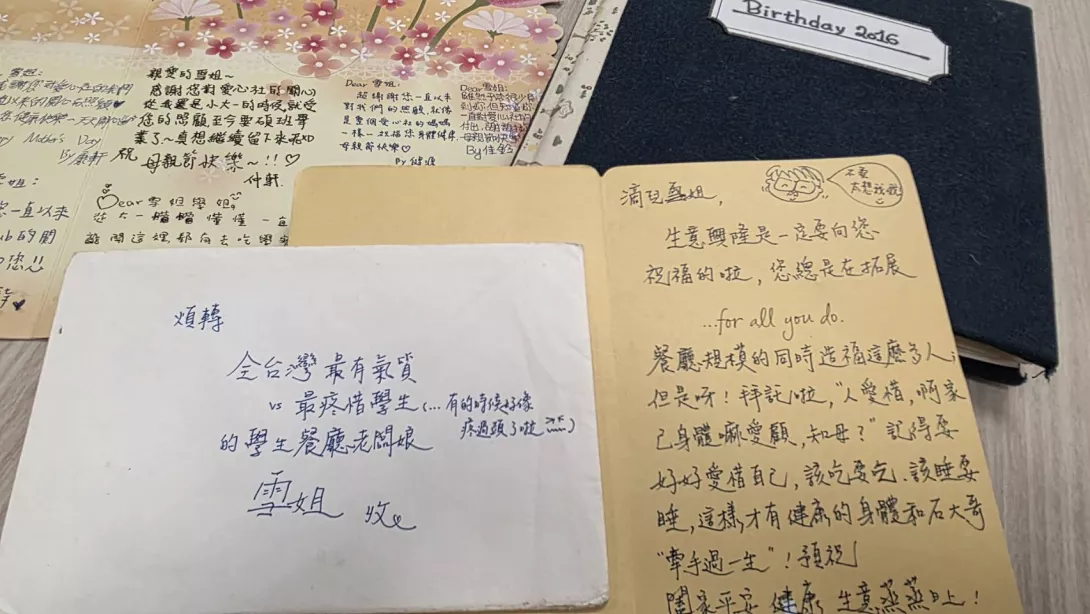 親愛的雪姐～
感謝您對愛心社的關心
從我還是小大一的時候,就受
您的照顧至今要碩班畢
業了～真想繼續留下來呢
祝
母親節快樂～!!♡
仲軒.
Dear 雪姐:
超謝謝您一直以來
對我們的照顧,就像
是整個愛心社的媽媽
一樣
母親節快樂♡
Dear 雪姐:
By 佳
Mother's Day
Dear 雪姐學姐,
從大一懵懵懂懂一直
離開這裡都有去吃
您一直以來
的關
Birthday 2016
煩轉
全台灣最有氣質
vs 最疼惜學生(...有的時候好像
疼過頭了啦)
的學生餐廳老闆娘
雪姐 收
雪姐,
不要
太想我哦
生意興隆是一定要向您
祝福的啦,您總是在拓展
...for all you do.
餐廳規模的同時造福這麼多人,
但是呀!拜託啦,"人愛惜,啊家
己身體嘛愛顧,知毋?"記得要
好好愛惜自己,該吃要吃.該睡要
睡,這樣才有健康的身體和石大哥
"牽手過一生"!預祝
闔家平安 健康 生意蒸蒸日上!